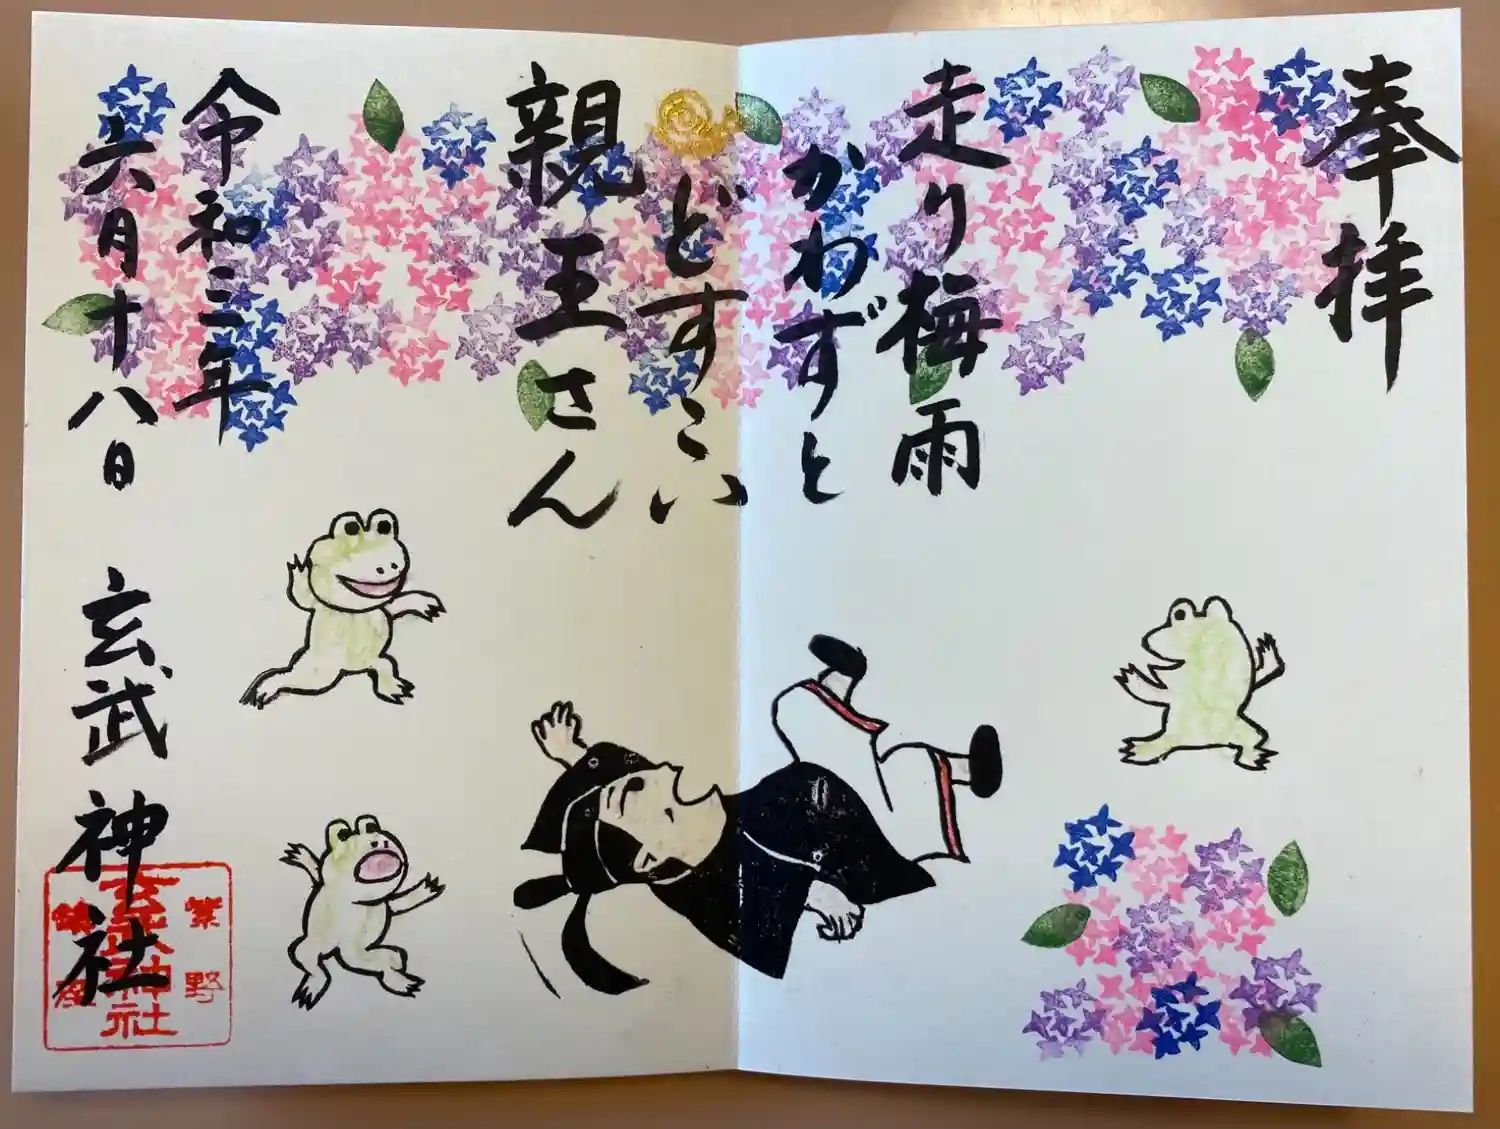 奉拝
走り梅雨
かわずと
どすこい
親王さん
令和二年
六月十八日
玄武神社
紫野
玄武神社